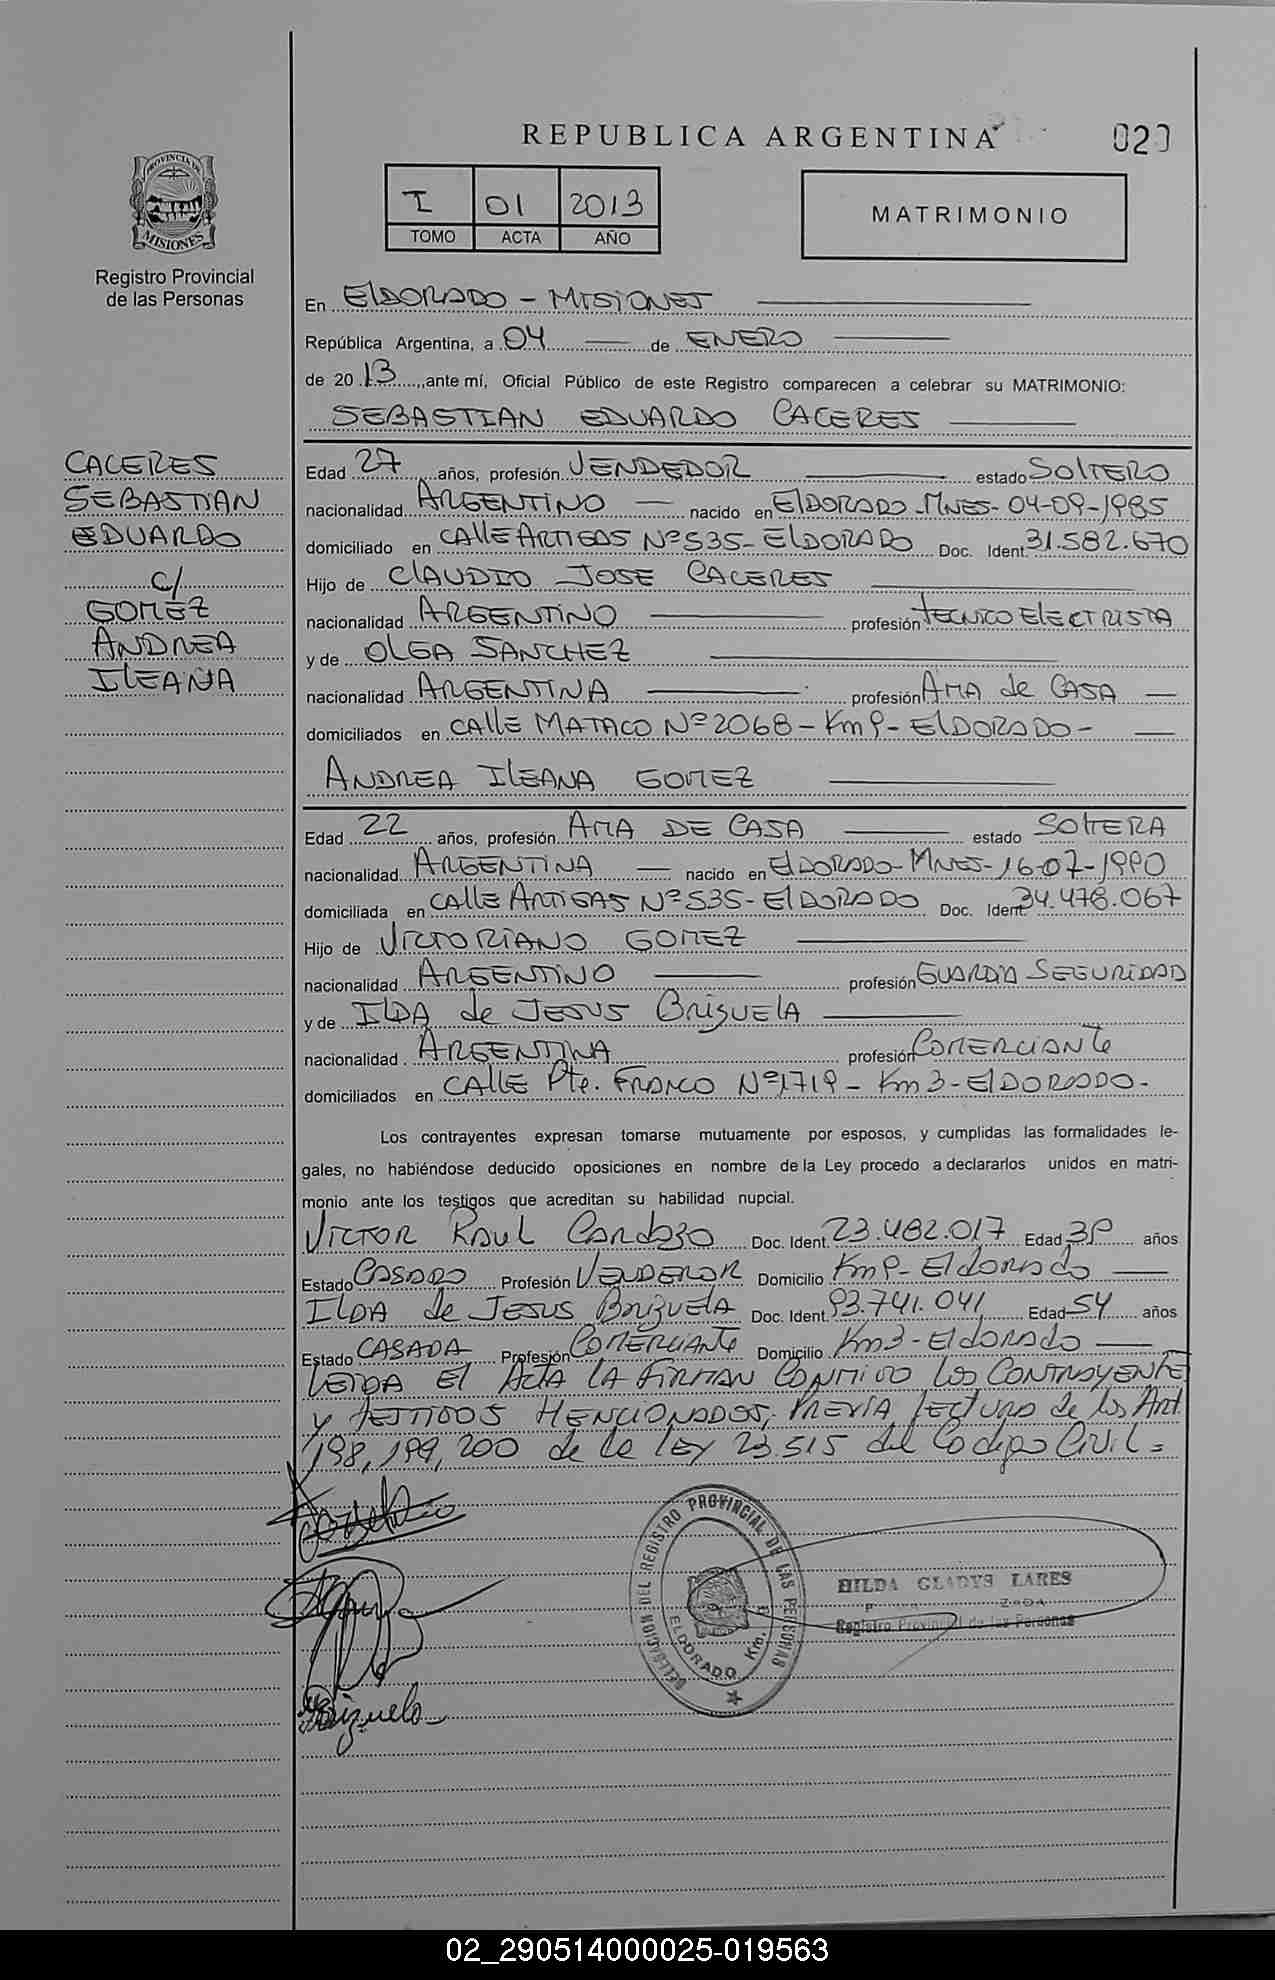 REPUBLICA ARGENTINA
020
I 01 2013
TOMO ACTA AÑO
MATRIMONIO
PROVINCIA DE
MISIONES
Registro Provincial
de las Personas
En ElDORADO - MISIONES
República Argentina, a 04 de ENERO
de 2013, ante mí, Oficial Público de este Registro comparecen a celebrar su MATRIMONIO:
SEBASTIAN EDUARDO CACERES
CACERES
SEBASTIAN
EDUARDO
c/
GOMEZ
ANDREA
ILEANA
Edad 27 años, profesión VENDEDOR estado SOlTERO
nacionalidad ARGENTINO nacido en ElDORADO-MNES- 04-09-1985
domiciliado en CAllE ARTIGAS Nº 535- ElDORADO Doc. Ident. 31.582.670
Hijo de ClAUDIO JOSE CACERES
nacionalidad ARGENTINO profesión TECNICO ElECTRISTA
y de OLGA SANCHEZ
nacionalidad ARGENTINA profesión AMA de CASA
domiciliados en CAllE MATACO Nº 2068 - Km 9 - ElDORADO -
ANDREA ILEANA GOMEZ
Edad 22 años, profesión AMA DE CASA estado SOlTERA
nacionalidad ARGENTINA nacido en ElDORADO-MNES- 16-07-1990
domiciliada en CAllE ARTIGAS Nº 535- ElDORADO Doc. Ident. 34.478.067
Hijo de VICTORIANO GOMEZ
nacionalidad ARGENTINO profesión GUARDIA SEGURIDAD
y de ILDA de JESUS BRIZUELA
nacionalidad ARGENTINA profesión COMERCIANTE
domiciliados en CALLE Pte. FRANCO Nº 1719 - Km 3 - ElDORADO -
Los contrayentes expresan tomarse mutuamente por esposos, y cumplidas las formalidades le-
gales, no habiéndose deducido oposiciones en nombre de la Ley procedo a declararlos unidos en matri-
monio ante los testigos que acreditan su habilidad nupcial.
VICTOR RAUL CARDOZO Doc. Ident. 23.482.017 Edad 39 años
Estado CASADO Profesión VENDEDOR Domicilio Km 9 - Eldorado
ILDA de JESUS BRIZUELA Doc. Ident. 93.741.041 Edad 54 años
Estado CASADA Profesión COMERCIANTE Domicilio Km3 - Eldorado
LEIDA El ACTA LA FIRMAN CONMIGO los CONTRAYENTE
y TESTIGOS MENCIONADOS, PREVIA lectura de los Art.
198, 199, 200 de la ley 23.515 del Codigo Civil =
DELEGACION DEL REGISTRO PROVINCIAL DE LAS PERSONAS
ELDORADO Km.
HILDA GLADYS LARES
Registro Provincial de las Personas
Brizuela
02_290514000025-019563